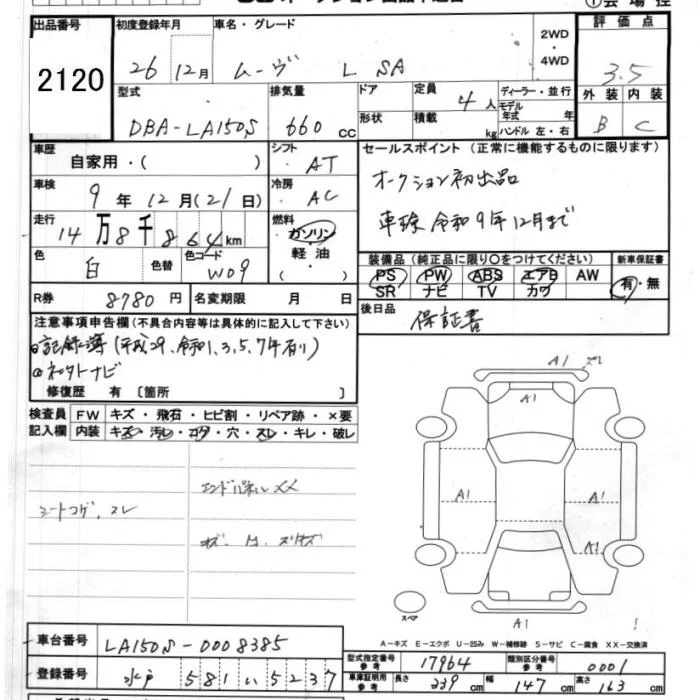 出品番号 初度登録年月 車名・グレード 2WD・4WD 評価点
2120 26 12月 ムーヴ L SA 3.5
型式 排気量 ドア 定員 4人 ディーラー・並行 外装 内装
DBA-LA150S 660cc 形状 積載 kg モデル年式 年 B C
ハンドル 左・右
車歴 自家用・( ) シフト AT セールスポイント (正常に機能するものに限ります)
車検 9年12月(21日) 冷房 AC オークション初出品
走行 14万8千864km 燃料 ガソリン 車検 令和9年12月まで
軽油
( )
色 白 色替 色コード W09 装備品 (純正品に限り○をつけてください) 新車保証書
PS PW ABS エアB AW 有・無
SR ナビ TV カワ
R券 8780円 名変期限 月 日 後日品 保証書
注意事項申告欄(不具合内容等は具体的に記入して下さい)
記録簿(平成29、令和1、3、5、7年有り)
ナビ
修復歴 有 〔箇所 〕
検査員 FW キズ・飛石・ヒビ割・リペア跡・×要
記入欄 内装 キズ・汚レ・コゲ・穴・スレ・キレ・破レ
A1 ズレ
A1
エンドパネルXX
シートコゲ、スレ
A1 A1
A1
スペア
A1 !
A-キズ E-エクボ U-凹ミ W-補修跡 S-サビ C-腐食 XX-交換済
車台番号 LA150S-0008385
型式指定番号 参考 17964 類別区分番号 参考 0001
登録番号 水戸 581 い 5237
車庫証明用 参考 長さ 339cm 幅 147cm 高さ 163cm